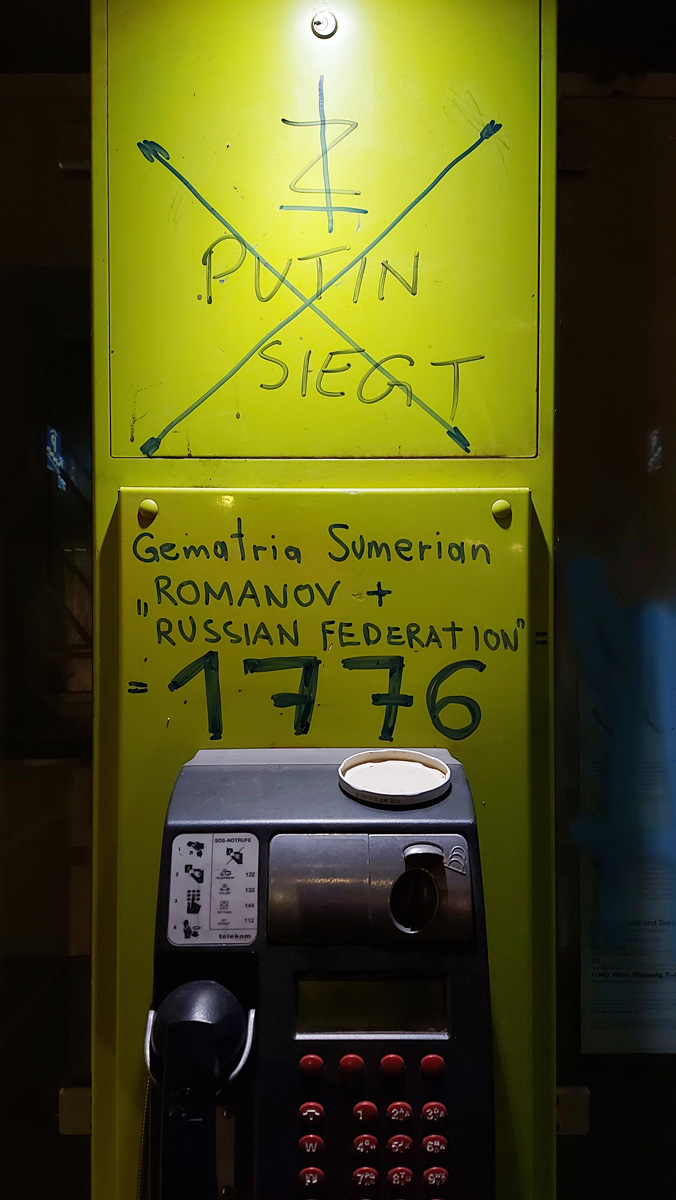 Z
PUTIN
SIEGT
Gematria Sumerian
„ROMANOV +
RUSSIAN FEDERATION" =
= 1776
SOS-NOTRUFE
1
2
122
133
3
144
4
112
telekom
1 2 3
W 4 5 6
7 8 9